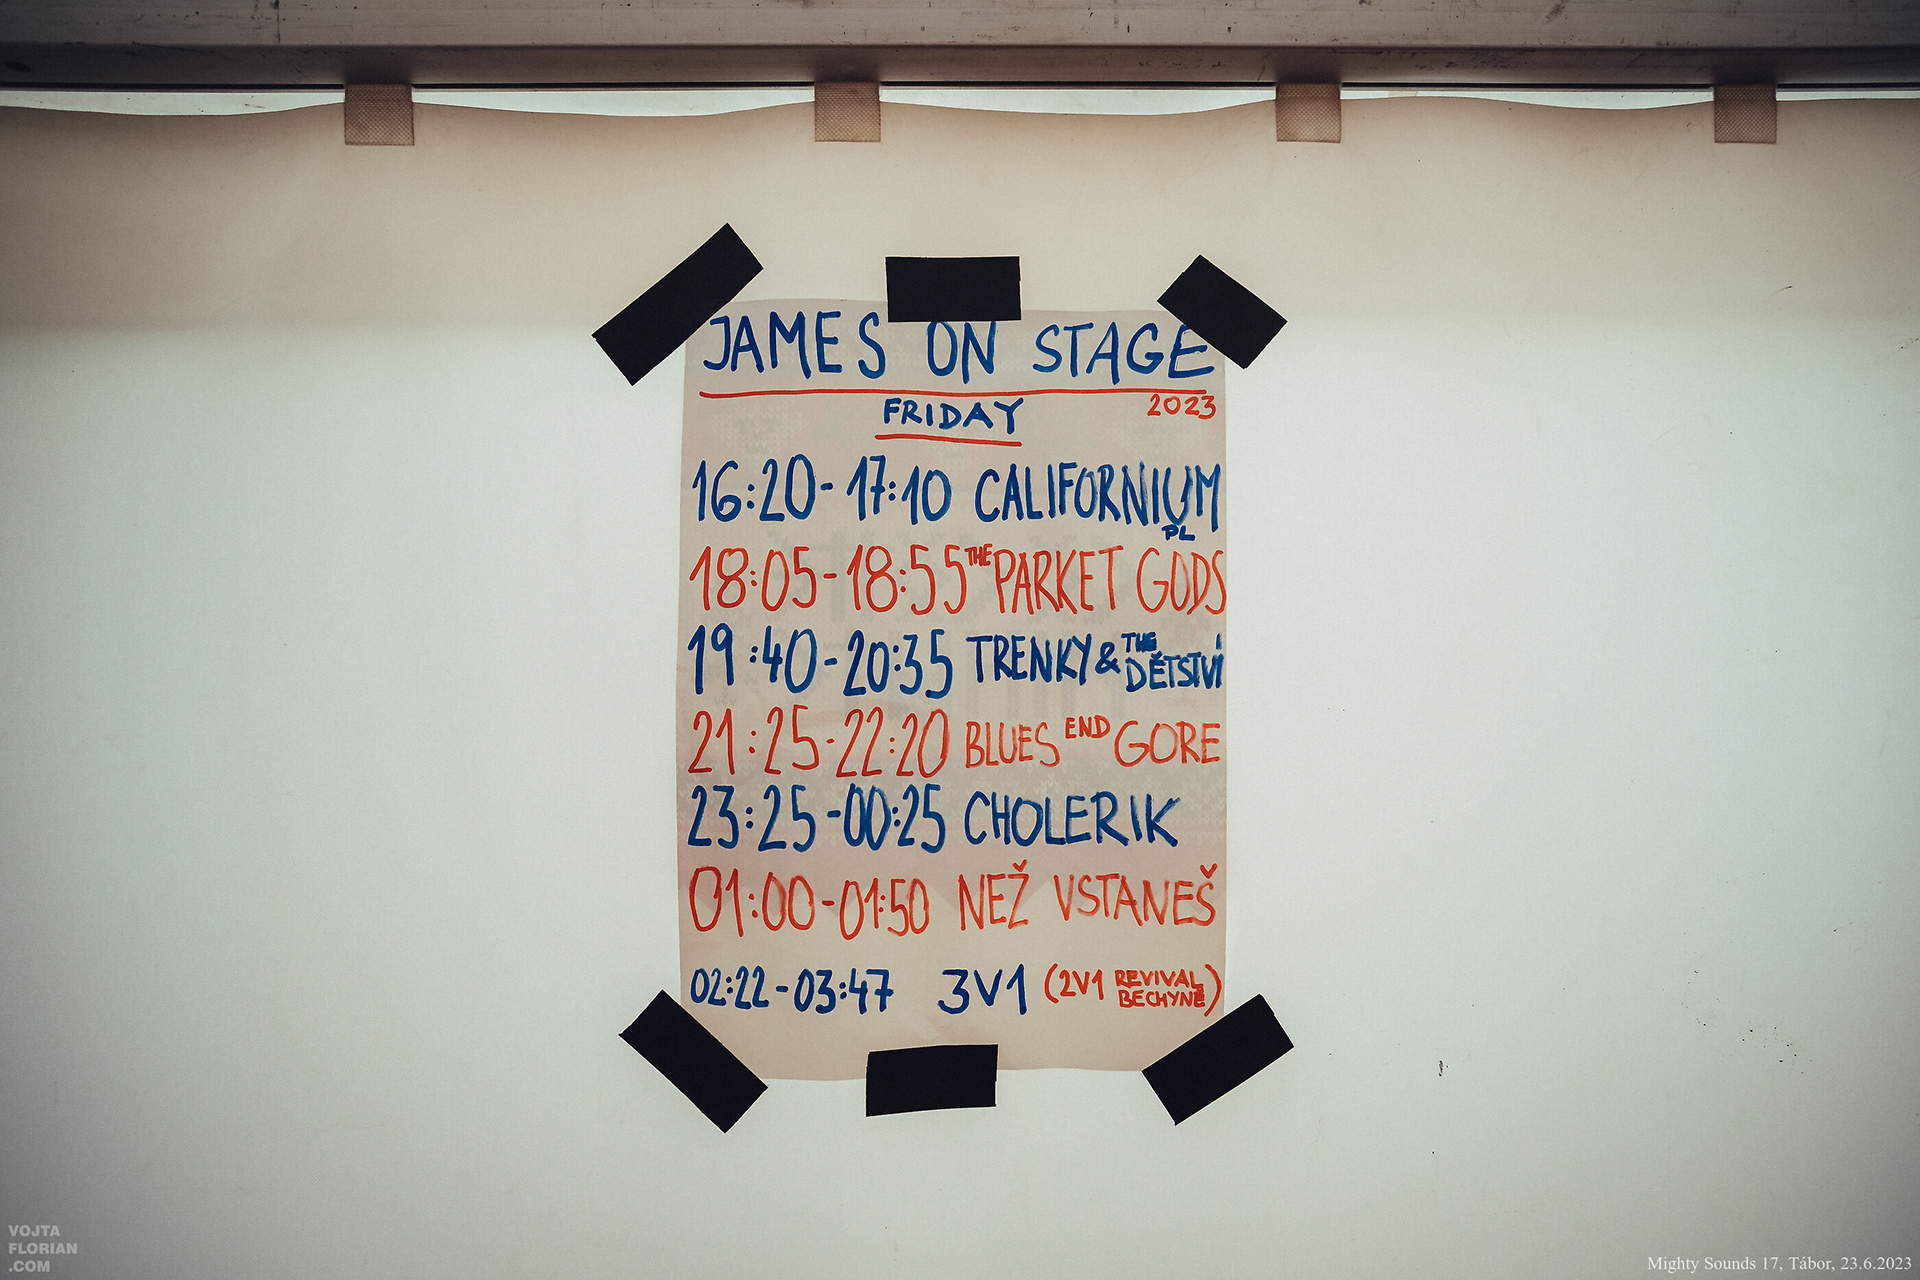 JAMES ON STAGE
2023
FRIDAY
16:20-17:10 CALIFORNIUM PL
18:05-18:55 THE PARKET GODS
19:40-20:35 TRENKY & THE DĚTSTVÍ
21:25-22:20 BLUES END GORE
23:25-00:25 CHOLERIK
01:00-01:50 NEŽ VSTANEŠ
02:22-03:47 3V1 (2V1 REVIVAL BECHYNĚ)
VOJTA
FLORIAN
.COM
Mighty Sounds 17, Tábor, 23.6.2023